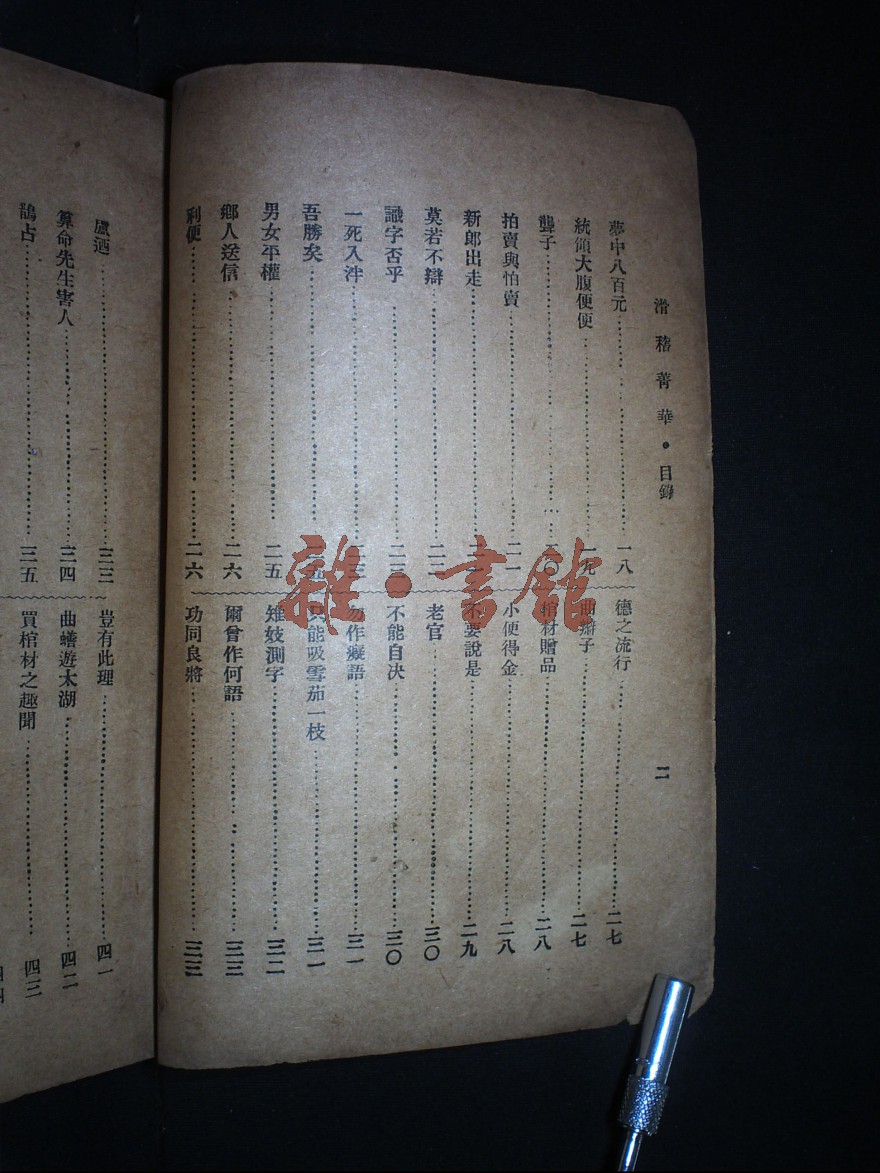 滑稽菁華•目錄
二
夢中八百元……一八
統領大腹便便……一九
聾子……二〇
拍賣與怕賣……二一
新郎出走……
莫若不辯……二二
識字否乎……二三
一死入泮……二三
吾勝矣……
男女平權……二五
鄉人送信……二六
利便……二六
德之流行……二七
曲辮子……二七
棺材贈品……二八
小便得金……二八
不要說是……二九
老官……三〇
不能自决……三〇
勿作癡語……三一
只能吸雪茄一枝……三一
雉妓測字……三二
爾曾作何語……三三
功同良將……三三
盧迺……三三
算命先生害人……三四
鵲占……三五
豈有此理……四一
曲蟮遊太湖……四二
買棺材之趣聞……四三
四四
雜•書館